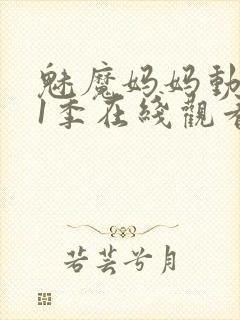 魅魔妈妈動
1季在綫觀看
若芸兮月